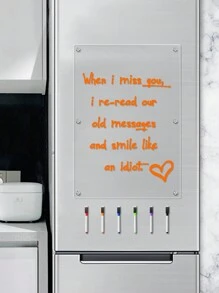 When I miss you,
i re-read our
old messages
and smile like
an idiot